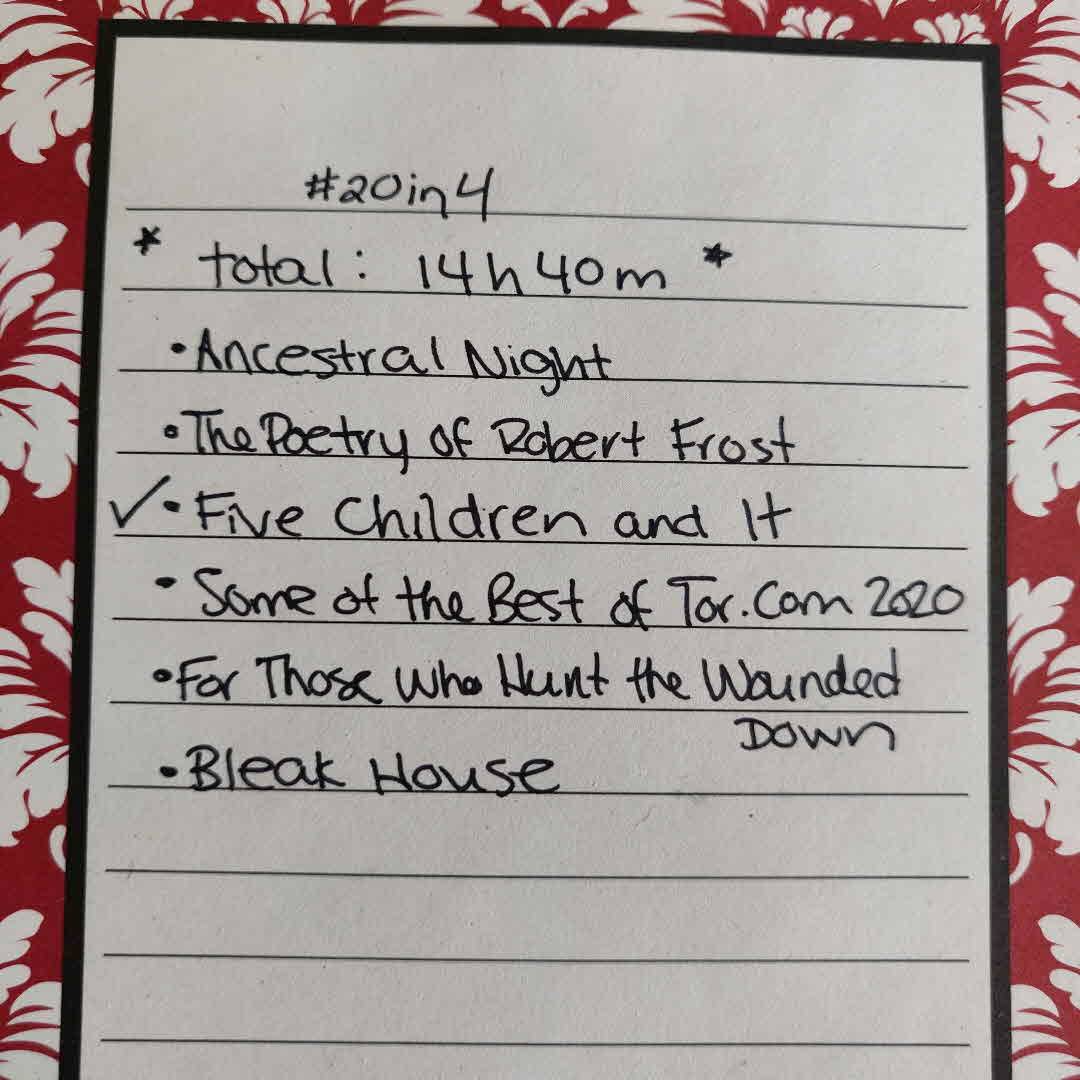 #20in4
* total: 14h 40m *
• Ancestral Night
• The Poetry of Robert Frost
✓• Five Children and It
• Some of the Best of Tor.Com 2020
• For Those Who Hunt the Wounded
Down
• Bleak House